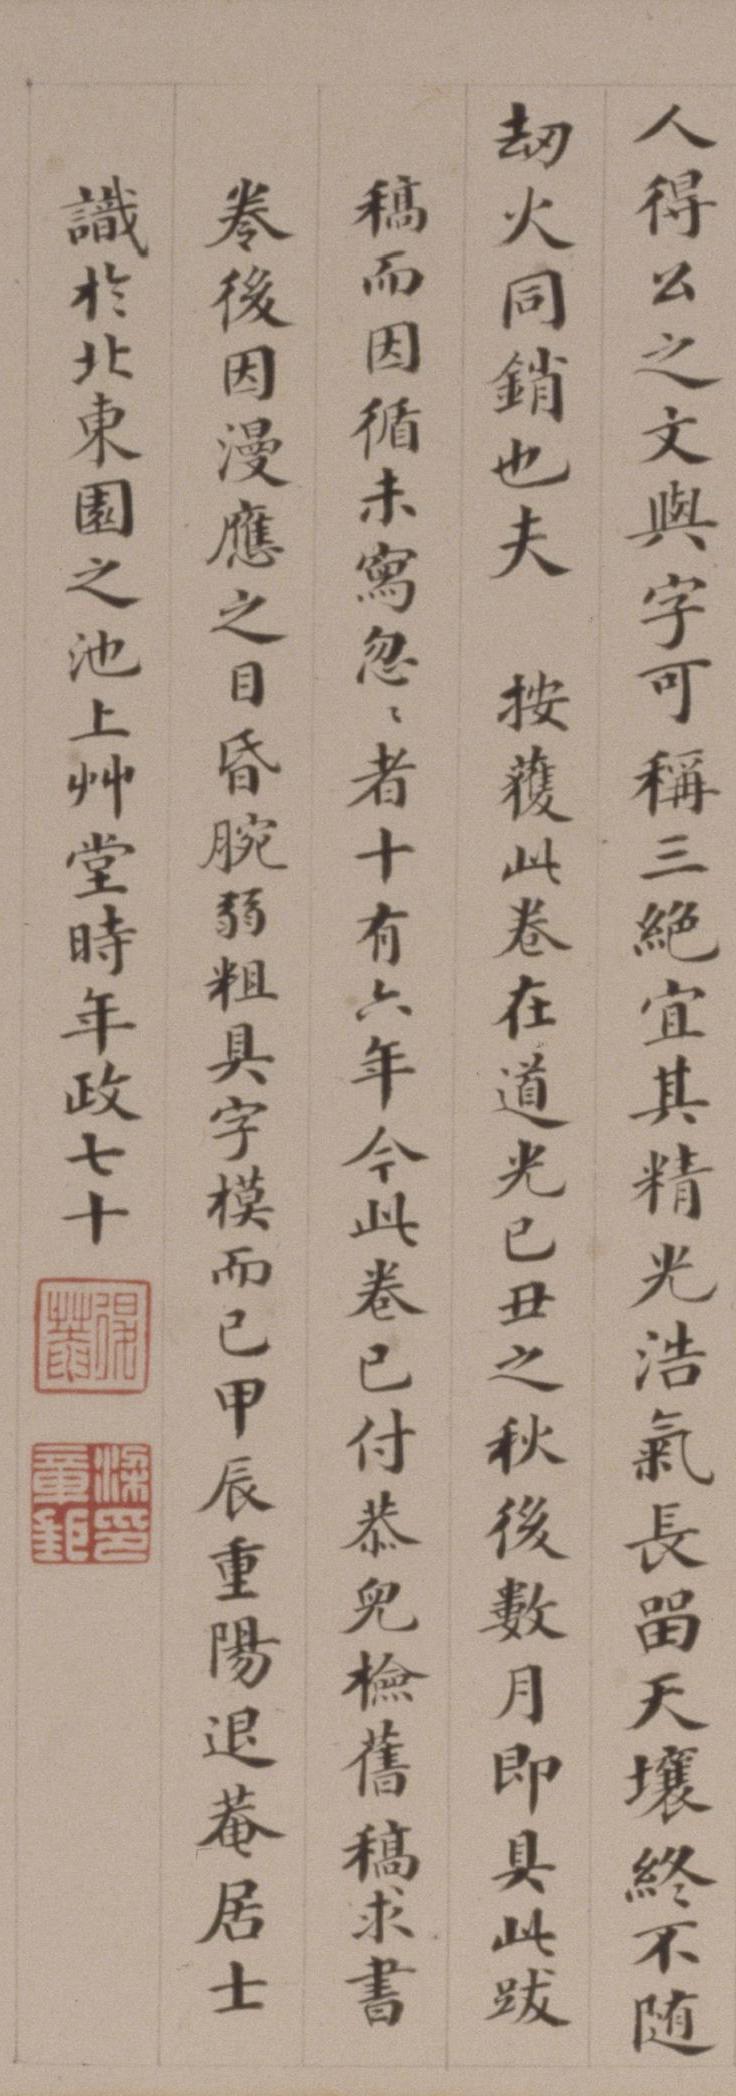 人得公之文與字可稱三絕宜其精光浩氣長留天壤終不随
劫火同銷也夫　按蒦此卷在道光己丑之秋後數月即具此跋
稿而因循未寫忽〻者十有六年今此卷已付恭兒檢舊稿求書
卷後因漫應之目昏腕弱粗具字模而已甲辰重陽退菴居士
識於北東園之池上艸堂時年政七十
梁印
章鉅